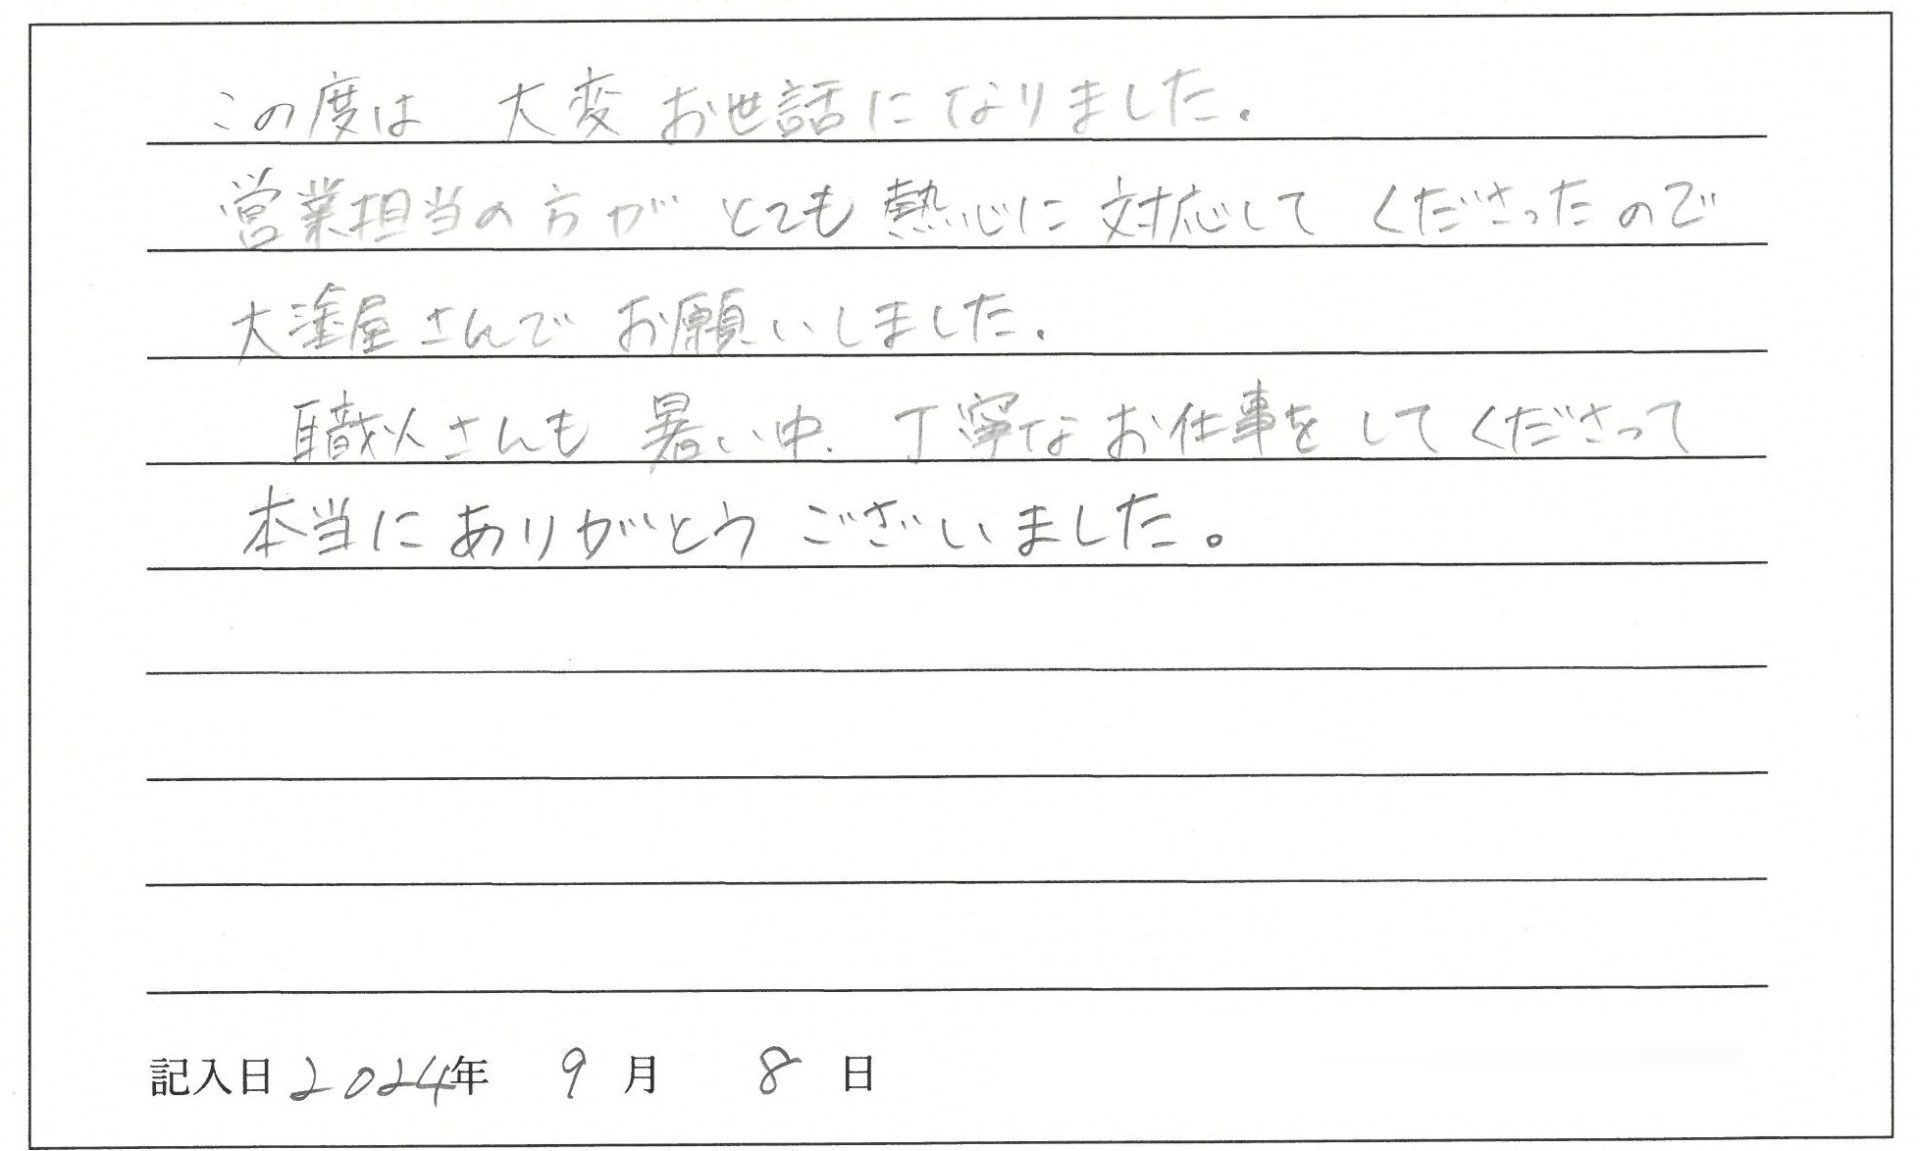 この度は 大変お世話になりました。
営業担当の方が とても 熱心に 対応して くださったので
大塗屋さんで お願いしました。
職人さんも 暑い中、丁寧な お仕事を してくださって
本当に ありがとう ございました。
記入日 2024年 9月 8日